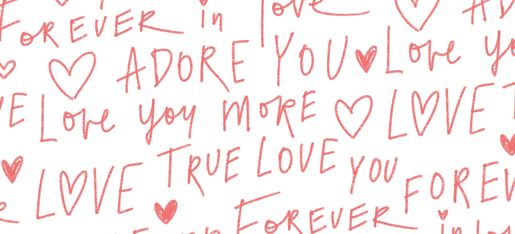 FOREVER in love
ADORE YOU Love
Love you MORE LOVE
LOVE TRUE LOVE YOU
FOREVER in